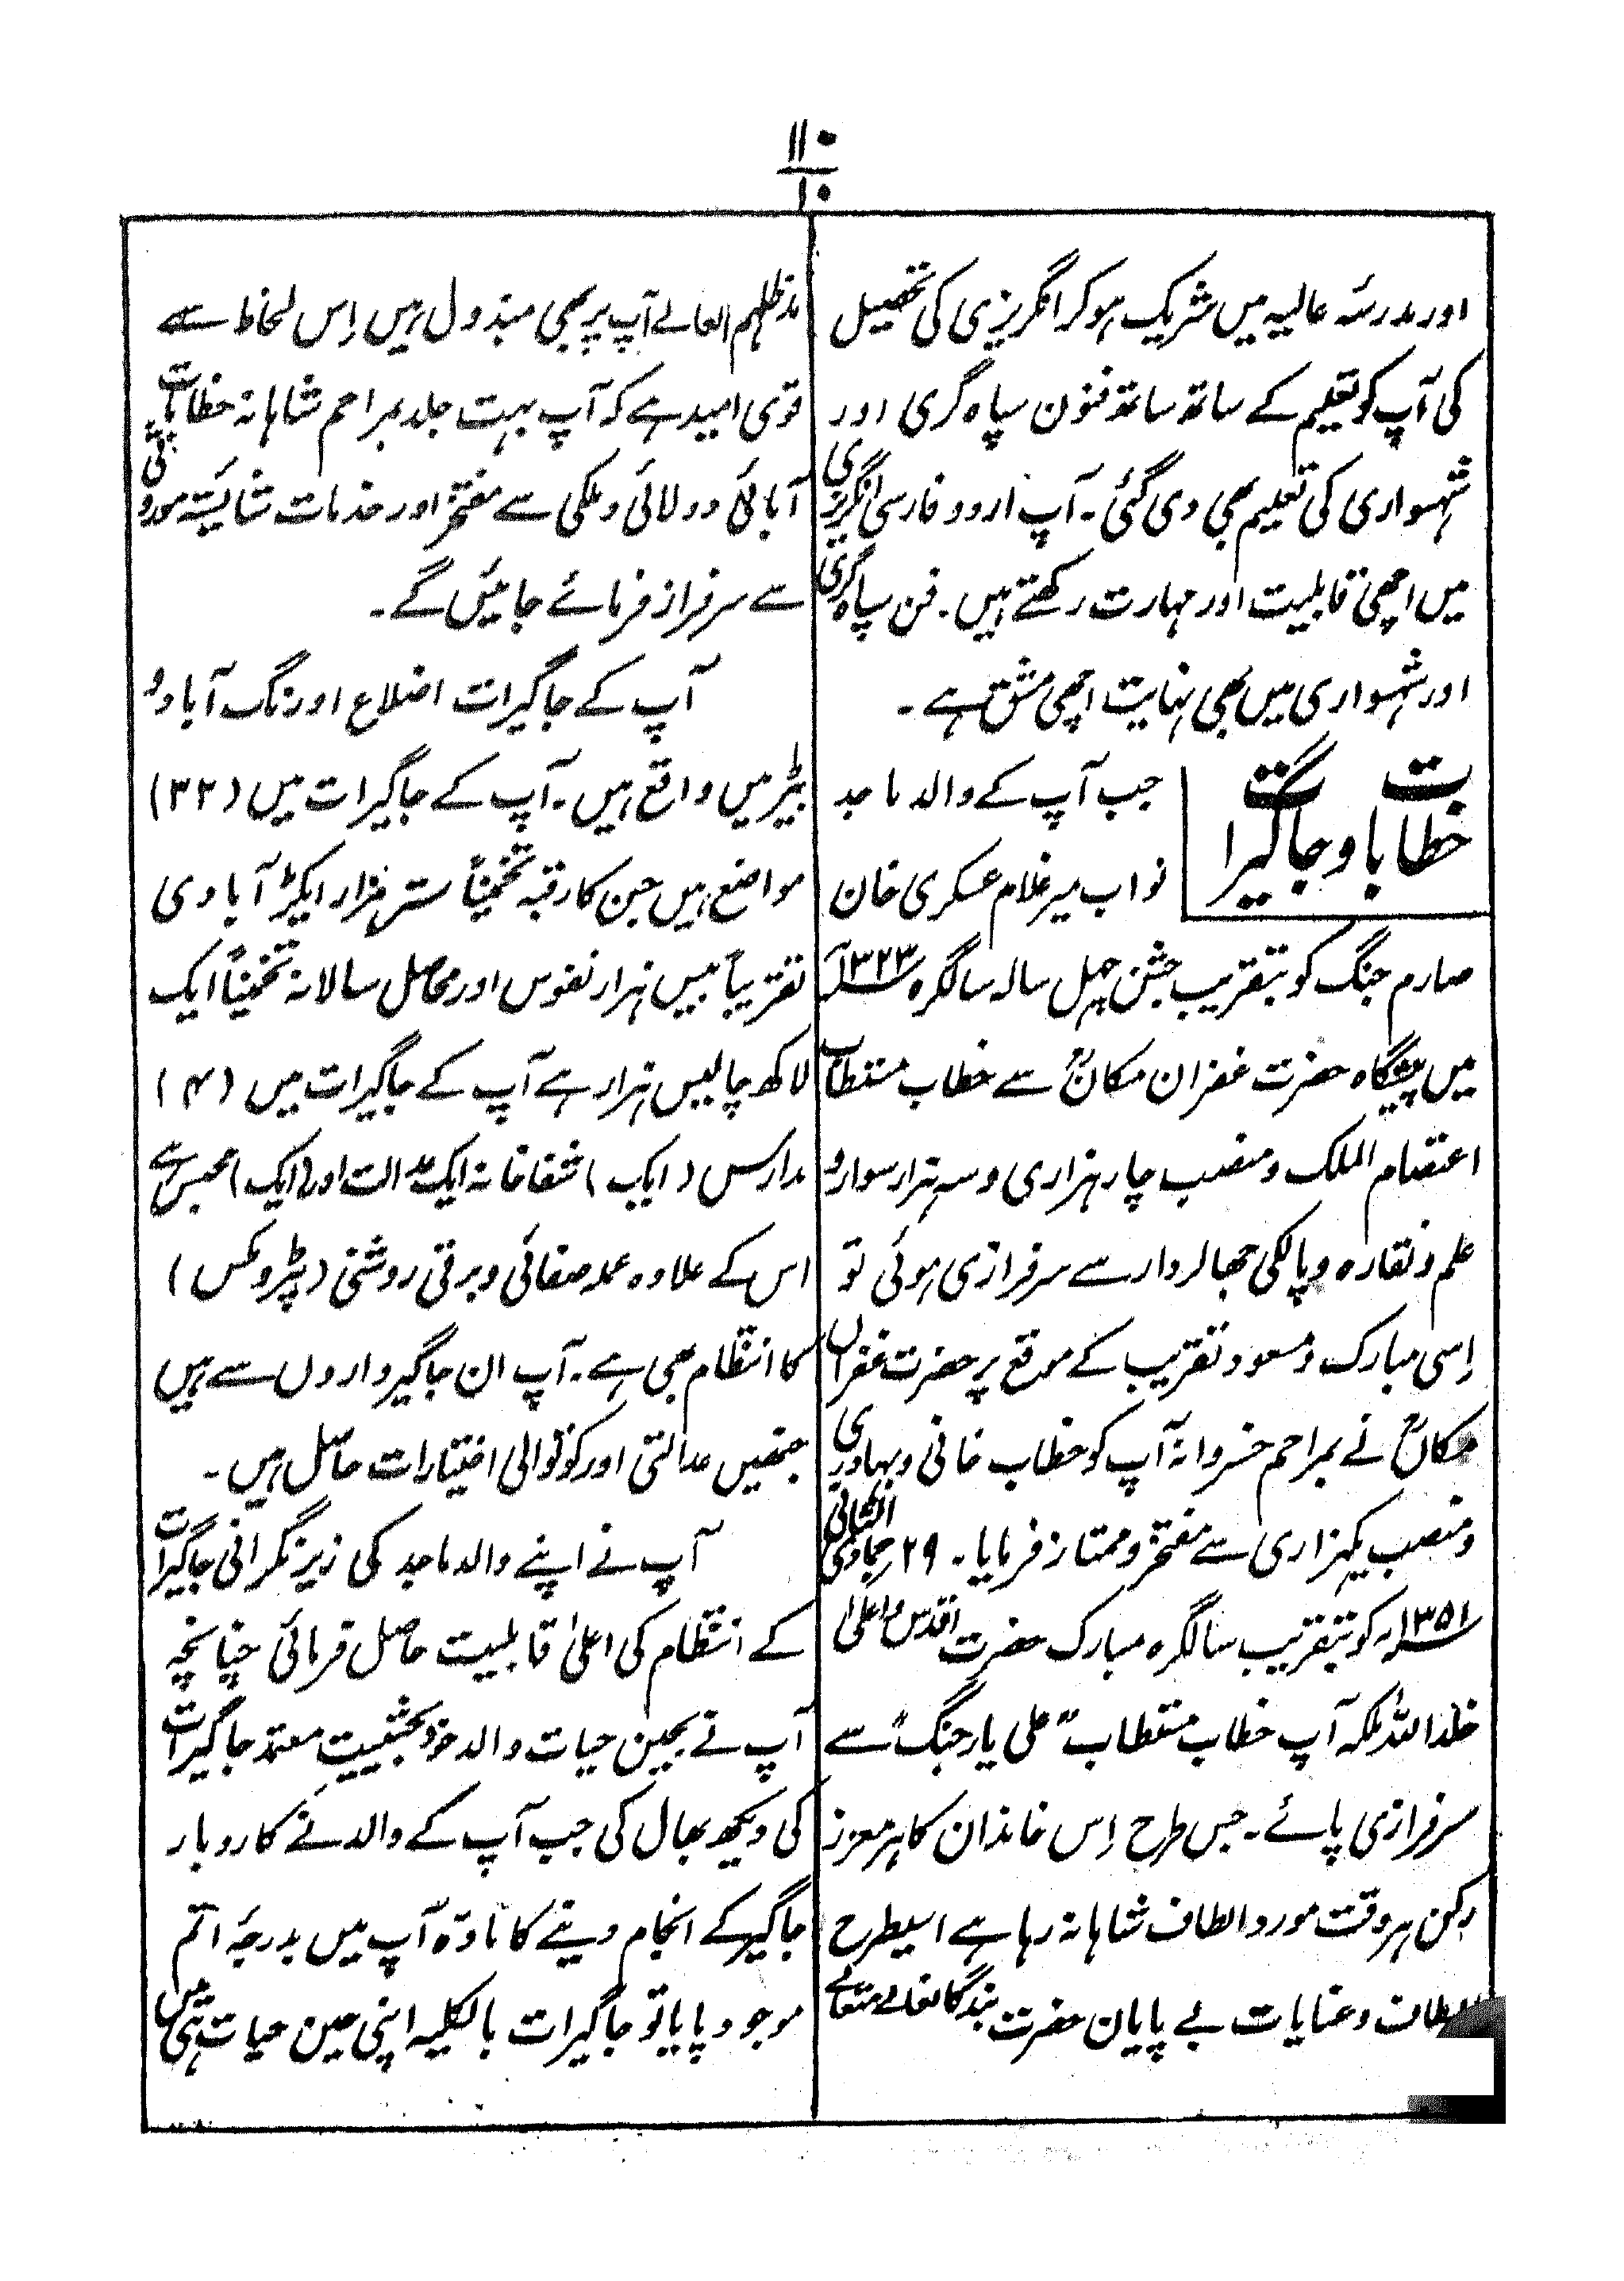 ۱۱۰
۱۰
اور مدرسۂ عالیہ میں شریک ہوکر انگریزی کی تحصیل
کی آپ کو تعلیم کے ساتھ ساتھ فنون سپاہ گری اور
شہسواری کی تعلیم بھی دی گئی۔ آپ اردو فارسی انگریزی
میں اچھی قابلیت اور مہارت رکھتے ہیں۔ فن سپاہ گری
اور شہسواری میں بھی نہایت اچھی مشق ہے۔
خطابات و جاگیرات
جب آپ کے والد ماجد
نواب میر غلام عسکری خان
صارم جنگ کو بتقریب جشن چہل سالہ سالگرہ ۱۳۲۳ھ
میں پیشگاہ حضرت غفران مکانؒ سے خطاب مستطاب
اعتضام الملک و منصب چار ہزاری و سہ ہزار سوار و
علم و نقارہ و پالکی جھالردار سے سرفرازی ہوئی تو
اِسی مبارک و مسعود تقریب کے موقع پر حضرت غفراں
مکانؒ نے بمراحم خسروانہ آپ کو خطاب خانی و بہادری
و منصب یکہزاری سے مفتخر و ممتاز فرمایا۔ ۲۹ جمادی الثانی
۱۳۵۱ھ کو بتقریب سالگرہ مبارک حضرت اقدس و اعلیٰ
خلد اللہ ملکہ آپ خطاب مستطاب "علی یار جنگ" سے
سرفرازی پائے۔ جس طرح اِس خاندان کا ہر معزز
رکن ہر وقت مورد الطاف شاہانہ رہا ہے اسیطرح
الطاف و عنایات بے پایان حضرت بندگانعالے متعالے
مدظلہم العالے آپ پر بھی مبذول ہیں اِس لحاظ سے
قوی امید ہے کہ آپ بہت جلد بمراحم شاہانہ خطابات
آبائی و دولائی و ملکی سے مفتخر اور خدمات شائستہ موروثی
سے سرفراز فرمائے جائیں گے۔
آپ کے جاگیرات اضلاع اورنگ آباد و
بیڑ میں واقع ہیں۔ آپ کے جاگیرات میں (۳۲)
مواضع ہیں جن کا رقبہ تخمیناً ستر ہزار ایکڑ آبادی
تقریباً بیس ہزار نفوس اور محاصل سالانہ تخمیناً ایک
لاکھ چالیس ہزار ہے آپ کے جاگیرات میں (۴)
مدارس (ایک) شفاخانہ ایک عدالت اور (ایک) محبس ہے
اس کے علاوہ عملہ صفائی و برقی روشنی (پٹرومکس)
کا انتظام بھی ہے۔ آپ ان جاگیرداروں سے ہیں
جنھیں عدالتی اور کوتوالی اختیارات حاصل ہیں۔
آپ نے اپنے والد ماجد کی زیر نگرانی جاگیرات
کے انتظام کی اعلیٰ قابلیت حاصل فرمائی چنانچہ
آپ نے بحین حیات والد خود بحیثیت معتمد جاگیرات
کی دیکھ بھال کی جب آپ کے والد نے کاروبار
جاگیر کے انجام دینے کا مادّہ آپ میں بدرجۂ اتم
موجود پایا تو جاگیرات بالکلیہ اپنی حین حیات ہی میں